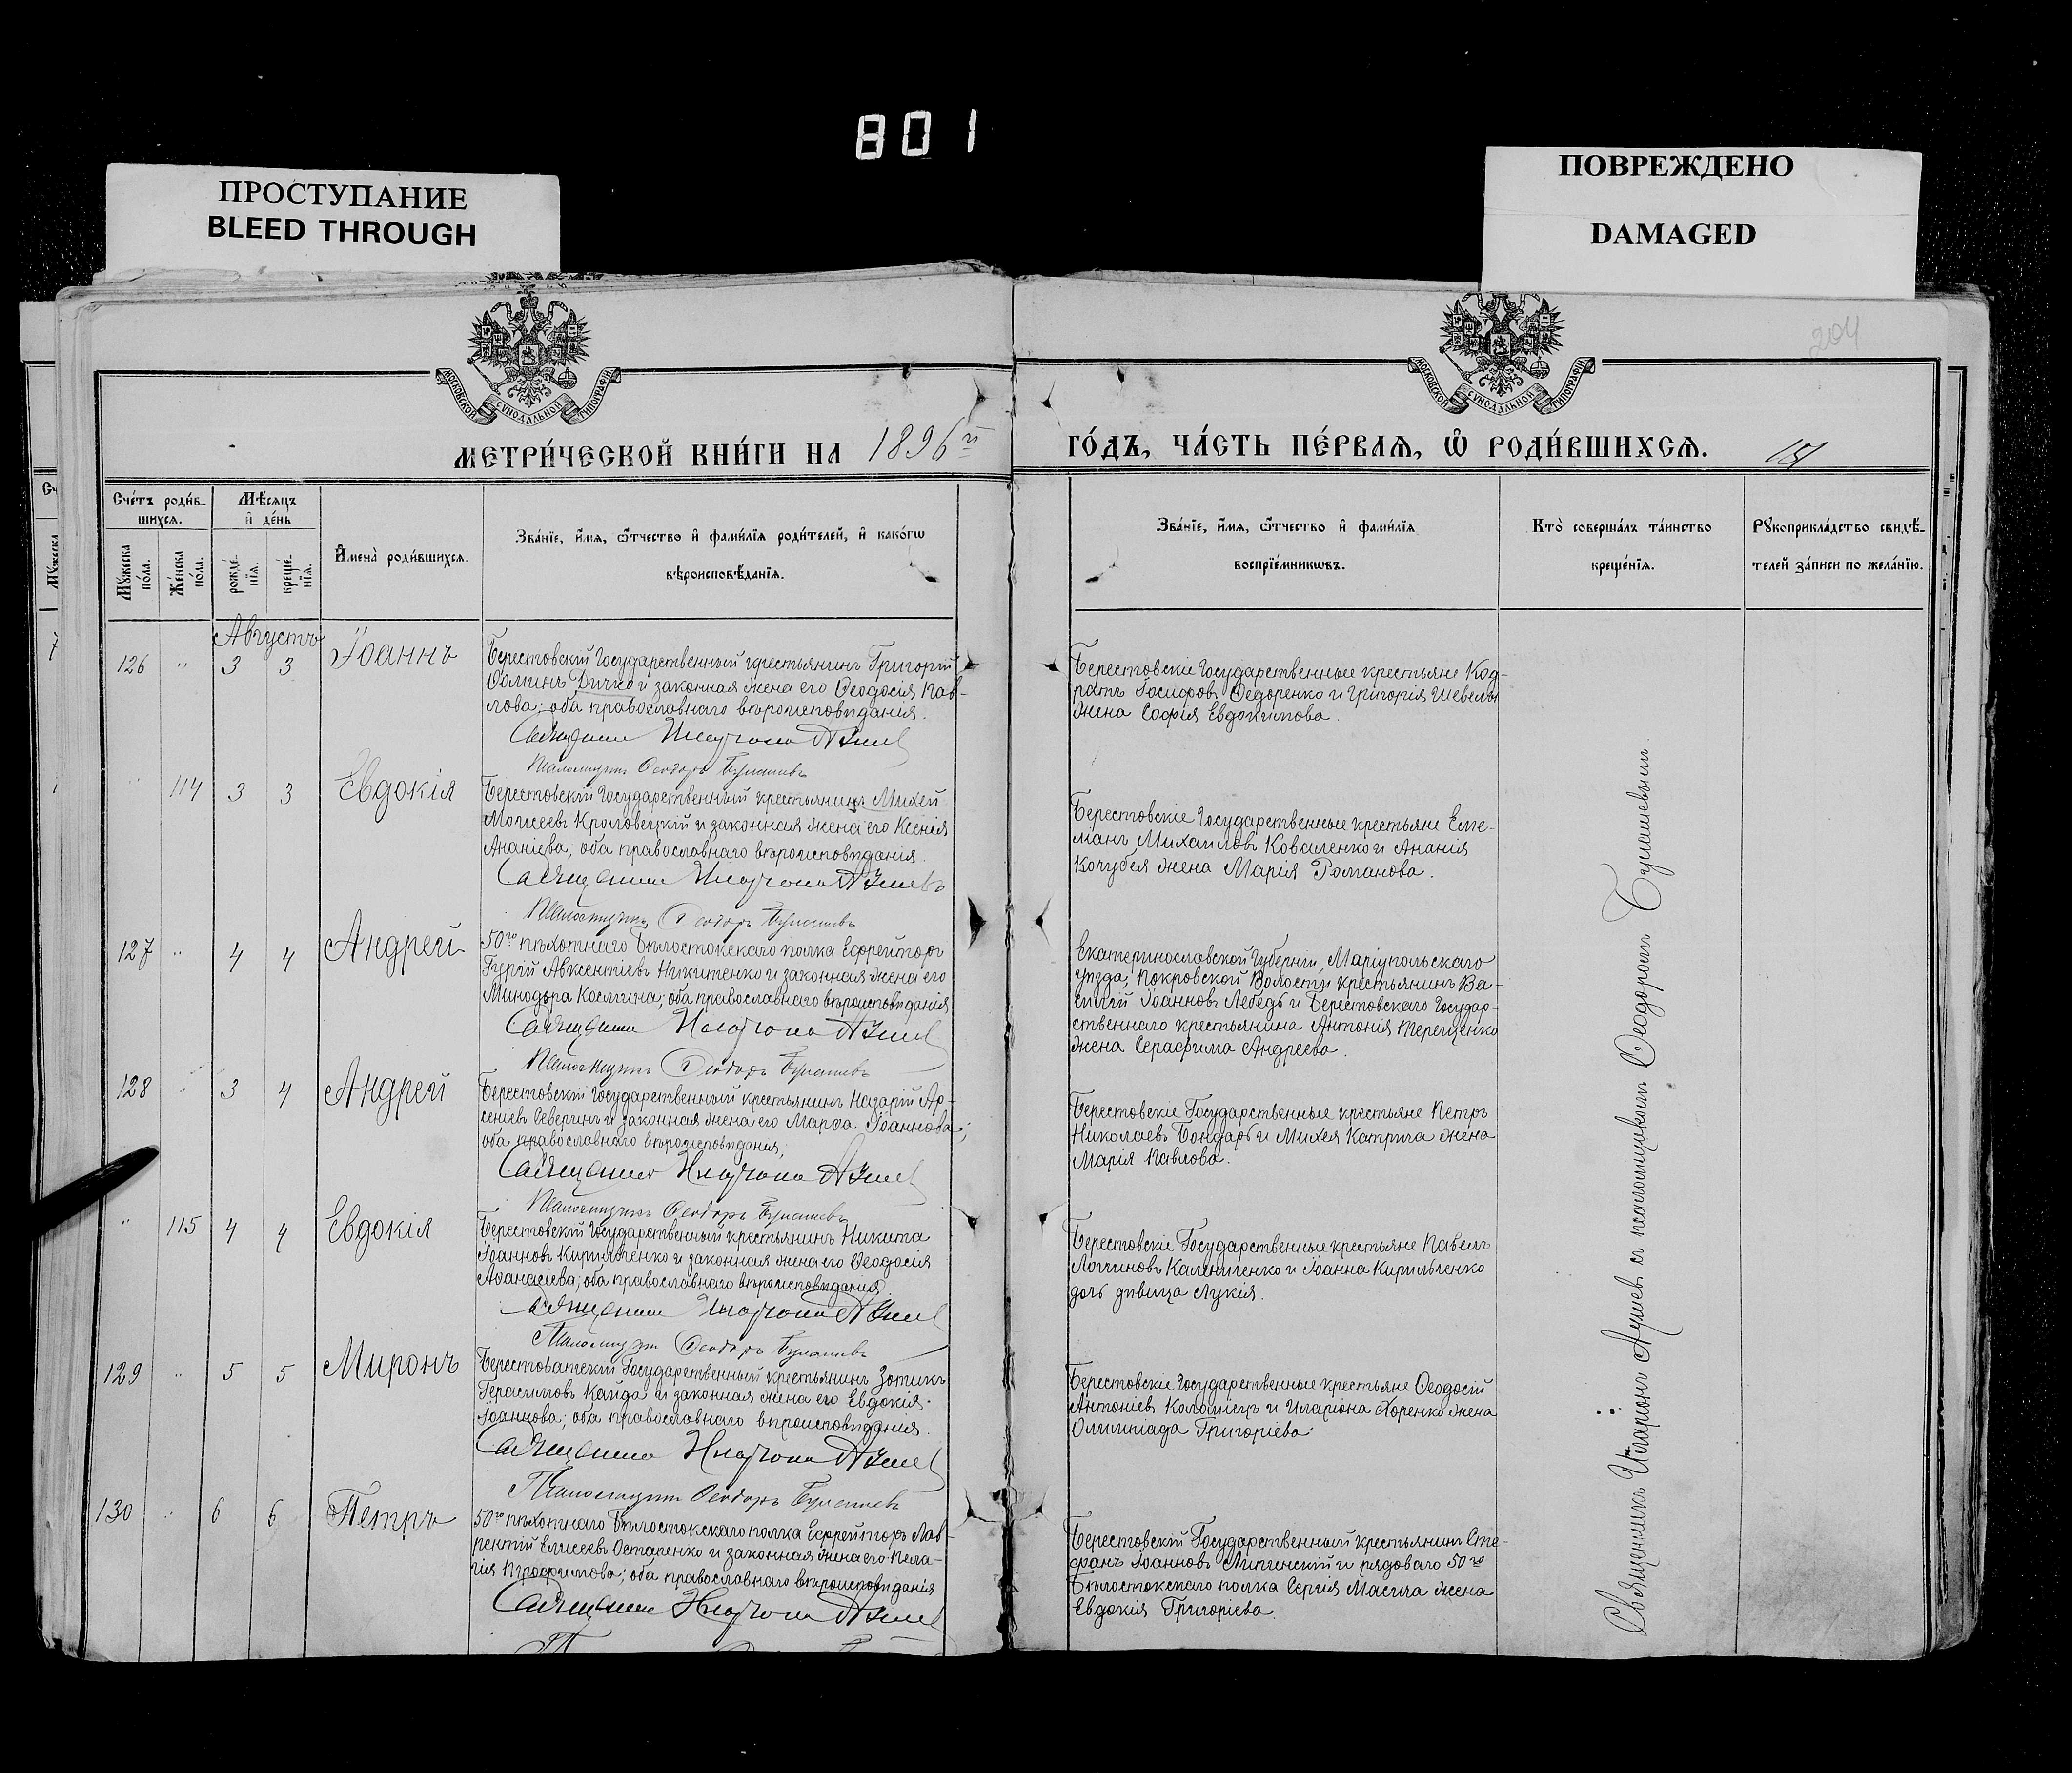 801
ПРОСТУПАНИЕ
BLEED THROUGH
ПОВРЕЖДЕНО
DAMAGED
204
МОСКОВСКОЙ СѴНОДАЛЬНОЙ ТИПОГРАФІИ
МОСКОВСКОЙ СѴНОДАЛЬНОЙ ТИПОГРАФІИ
МЕТРИ́ЧЕСКОЙ КНИ́ГИ НА 1896й
ГО́ДЪ, ЧА́СТЬ ПЕ́РВАѦ, Ѡ РОДИ́ВШИХСѦ.
Сче́тъ роди́в-
шихсѧ.
Мѣ́сѧцъ
и҆ де́нь
Мꙋ́жеска
по́ла.
Же́нска
по́ла.
рожде́-
нїѧ.
креще́-
нїѧ.
И҆мена̀ роди́вшихсѧ.
Зва́нїе, и҆́мѧ, ѻ҆́тчество и҆ фами́лїѧ роди́телей, и҆ како́гѡ
вѣроисповѣ́данїѧ.
Зва́нїе, и҆́мѧ, ѻ҆́тчество и҆ фами́лїѧ
воспрїе́мникѡвъ.
Кто̀ соверша́лъ та́инство
креще́нїѧ.
Рꙋкоприкла́дство свидѣ́-
телей за́писи по жела́нїю.
Августъ
126 " 3 3 Іоаннъ
Берестовскій Государственный крестьянинъ Григорій
Ѳоминъ Дичко и законная жена его Ѳеодосія Пав-
лова; оба православнаго вѣроисповѣданія.
Священникъ Иларіонъ Ауліевъ
Псаломщикъ Ѳеодоръ Бушашевъ
Берестовскіе Государственные крестьяне Код-
ратъ Федоренко и Григорія
жена Софія Евдокимова.
" 114 3 3 Евдокія
Берестовскій Государственный крестьянинъ Михей
Моисеевъ Кроловецкій и законная жена его Ксенія
Ананіева, оба православнаго вѣроисповѣданія.
Священникъ Иларіонъ Ауліевъ
Псаломщикъ Ѳеодоръ Бушашевъ
Берестовскіе Государственные крестьяне Еме-
ліанъ Михаиловъ Коваленко и Ананія
Кочубея жена Марія Романова.
127 " 4 4 Андрей
50го пѣхотнаго Бѣлостокскаго полка Ефрейторъ
Гурій Авксентіевъ Никитенко и законная жена его
Минодора Космина; оба православнаго вѣроисповѣданія
Священникъ Иларіонъ Ауліевъ
Псаломщикъ Ѳеодоръ Бушашевъ
Екатеринославской Губерніи, Маріупольскаго
уѣзда, Покровской Волости крестьянинъ Ва-
силій Іоанновъ Лебедь и Берестовскаго Государ-
ственнаго крестьянина Антонія Терещенко
жена Серафима Андреева.
128 " 3 4 Андрей
Берестовскій Государственный крестьянинъ Назарій Ар-
сеніевъ Северинъ и законная жена его Марѳа Іоаннова;
оба православнаго вѣроисповѣданія;
Священникъ Иларіонъ Ауліевъ
Псаломщикъ Ѳеодоръ Бушашевъ
Берестовскіе Государственные крестьяне Петръ
Николаевъ Бондарь и Михея Катрича жена
Марія Павлова.
" 115 4 4 Евдокія
Берестовскій Государственный крестьянинъ Никита
Іоанновъ Кирильченко и законная жена его Ѳеодосія
Аѳанасіева; оба православнаго вѣроисповѣданія.
Священникъ Иларіонъ Ауліевъ
Псаломщикъ Ѳеодоръ Бушашевъ
Берестовскіе Государственные крестьяне Павелъ
Логгиновъ Калениченко и Іоанна Кирильченко
дочь дѣвица Лукія.
129 " 5 5 Миронъ
Государственный крестьянинъ Зотикъ
Герасимовъ Кайда и законная жена его Евдокія
Іоаннова; оба православнаго вѣроисповѣданія.
Священникъ Иларіонъ Ауліевъ
Псаломщикъ Ѳеодоръ Бушашевъ
Берестовскіе Государственные крестьяне Ѳеодосій
Антоніевъ Коломіецъ и Иларіона Хоренко жена
Олимпіада Григоріева.
130 " 6 6 Петръ
50го пѣхотнаго Бѣлостокскаго полка Ефрейторъ Лав-
рентій Елисеевъ Остапенко и законная жена его Пела-
гія Трофимова; оба православнаго вѣроисповѣданія
Священникъ Иларіонъ Ауліевъ
Берестовскій Государственный крестьянинъ Сте-
фанъ Іоанновъ Липинскій и рядоваго 50го
Бѣлостокскаго полка Сергія Масича жена
Евдокія Григоріева.
Священникъ Иларіонъ Ауліевъ съ псаломщикомъ Ѳеодоромъ Бушашевымъ.